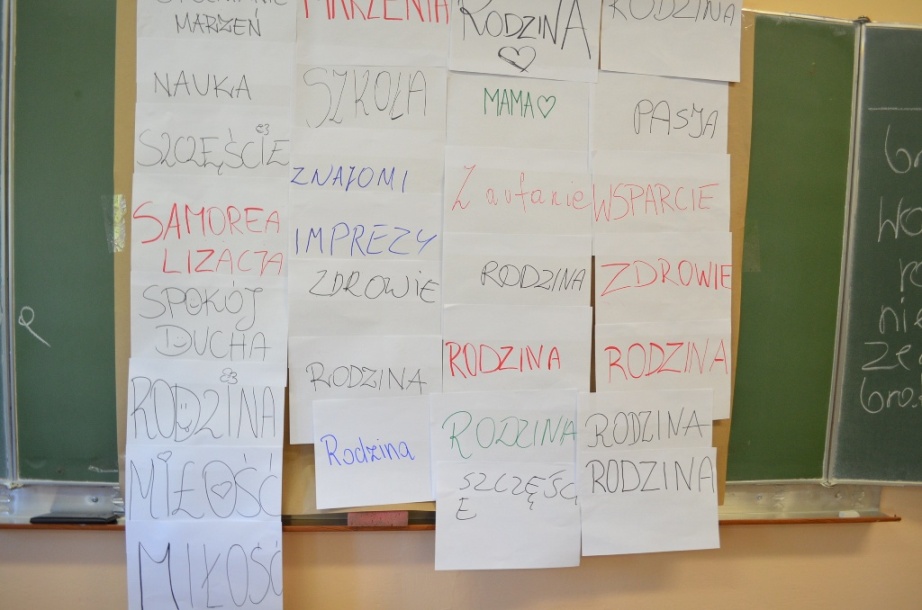 MARZEŃ
NAUKA
SZCZĘŚCIE
SAMOREA
LIZACJA
SPOKÓJ
DUCHA
RODZINA
MIŁOŚĆ
MIŁOŚĆ
MARZENIA
SZKOŁA
ZNAJOMI
IMPREZY
ZDROWIE
RODZINA
Rodzina
RODZINA
MAMA
Zaufanie
RODZINA
RODZINA
RODZINA
SZCZĘŚCI
E
RODZINA
PASJA
WSPARCIE
ZDROWIE
RODZINA
RODZINA
RODZINA